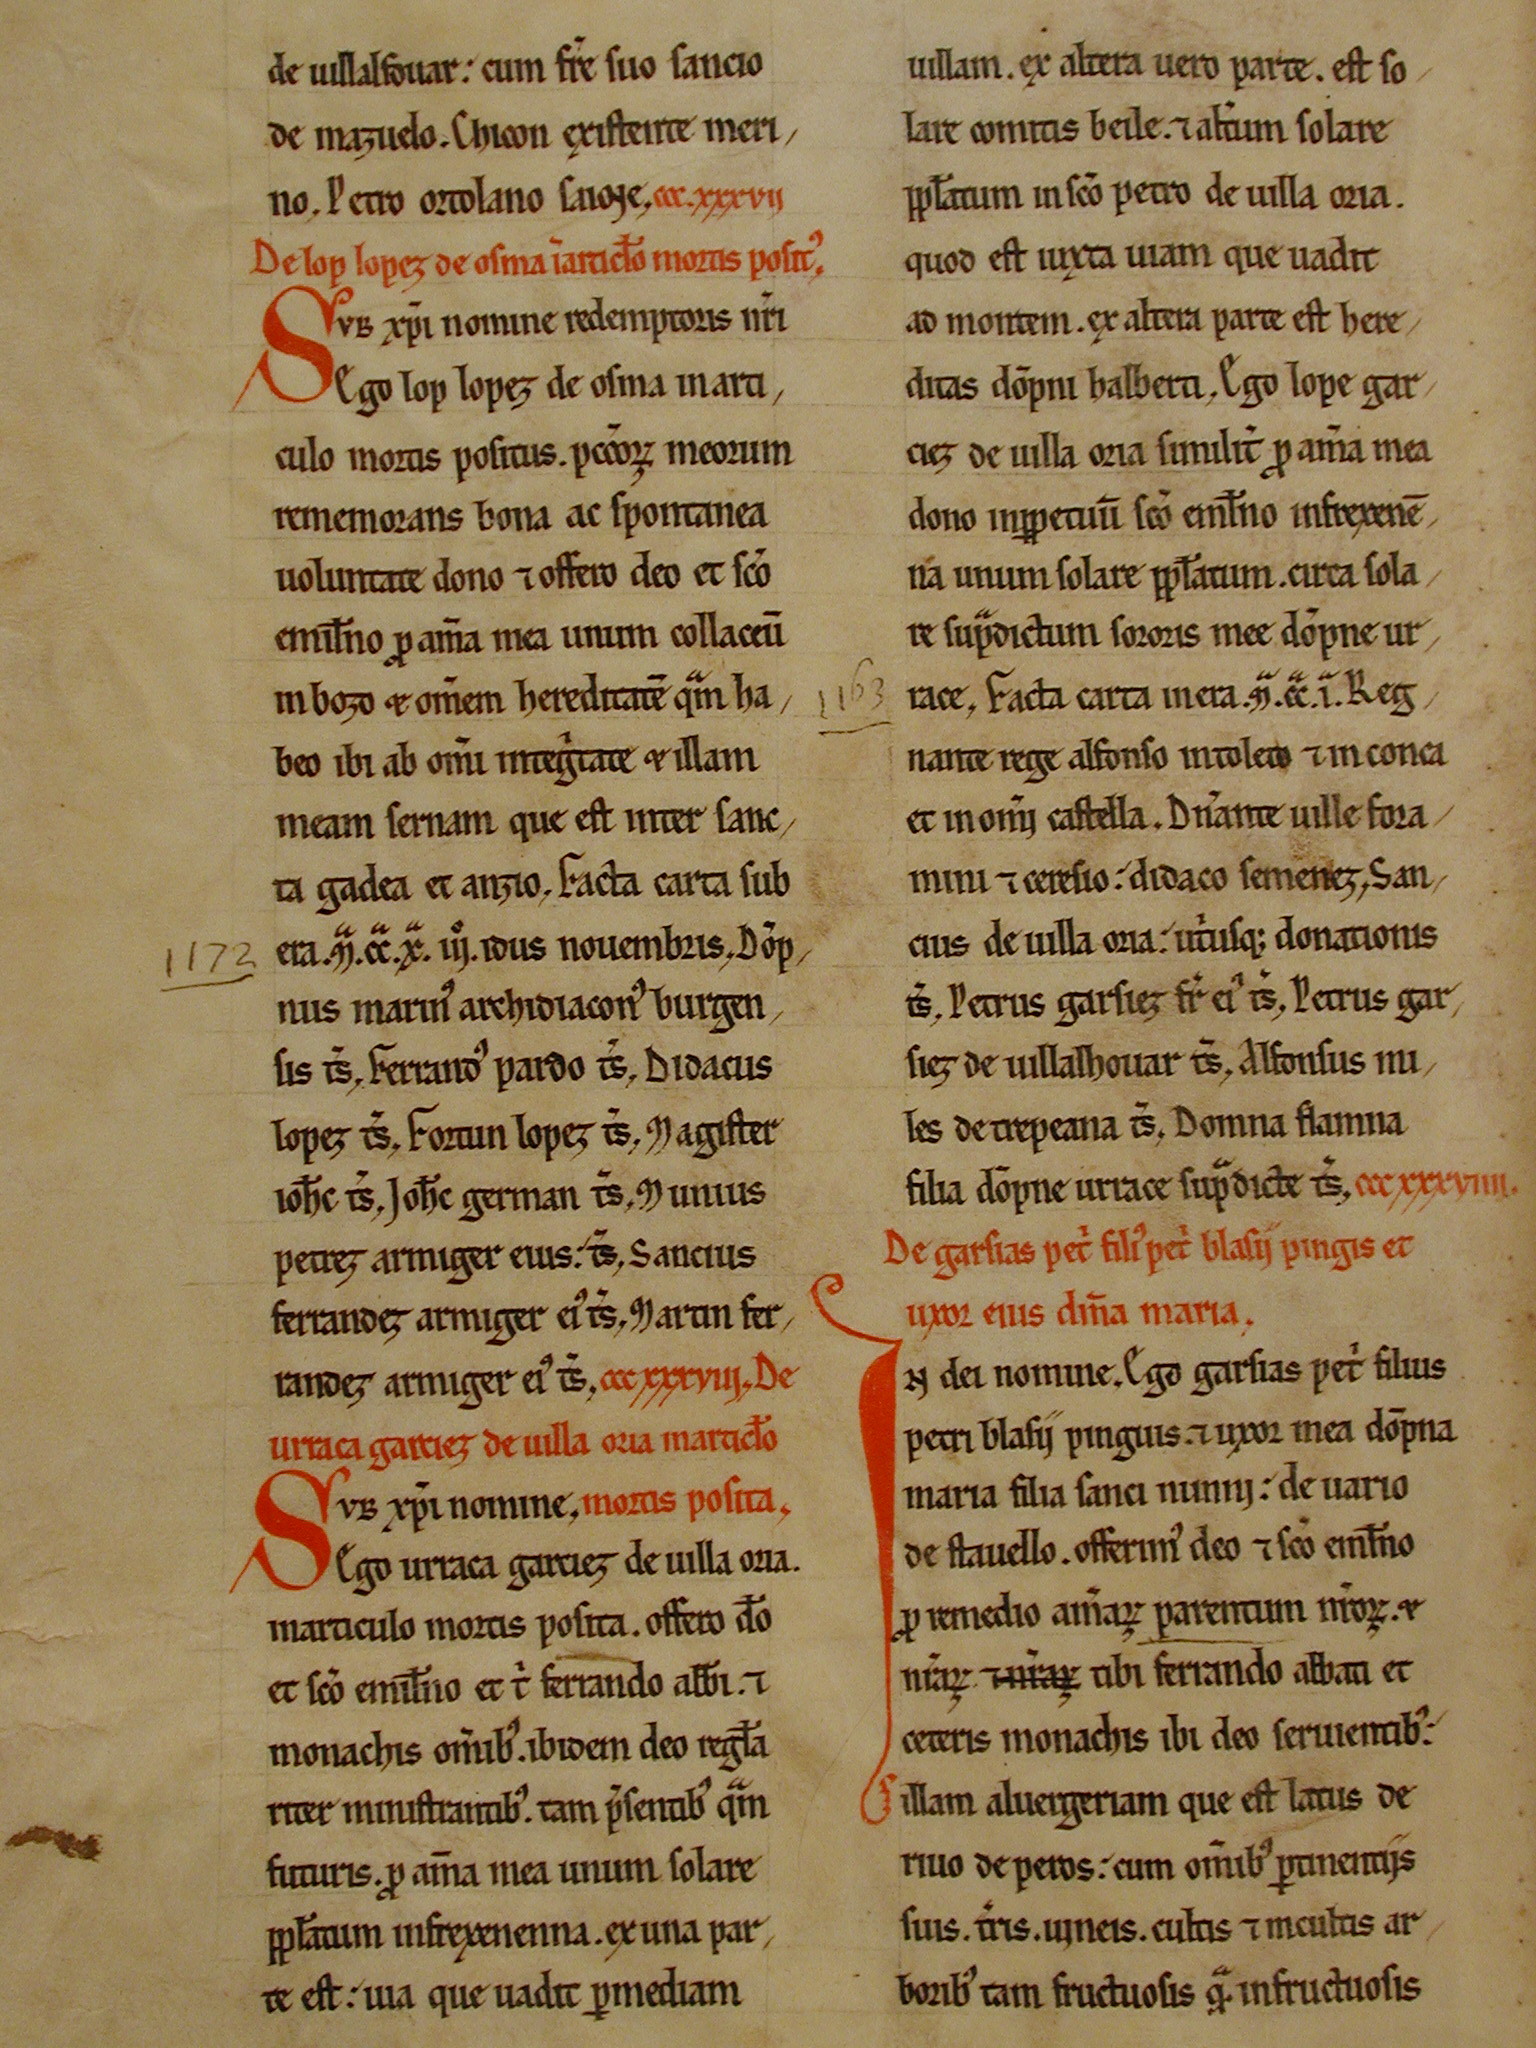 de uillalfouar: cum fr̃e suo sancio
de mazuelo. Chicon existente meri,
no. Petro ortolano ccc.xxxvij
De lop lopez de osma ĩarticlo mortis posit⁹.
Svb xp̃i nomine redemptoris nr̃i
Ego lop lopez de osma in arti,
culo mortis positus. pcc̃oꝝ meorum
rememorans bona ac spontanea
uoluntate dono ⁊ offero deo et sc̃o
emil̃no ꝓ am̃a mea unum collaceũ
in bozo & om̃em hereditatẽ qᵃm ha,
beo ibi ab om̃i integ̃tate & illam
meam sernam que est inter sanc,
ta gadea et anzio. Facta carta sub
era.ᵃM.ᵃcc.ᵃx. iijº. idus nouembris. Dõp,
nus marin⁹ archidiacon⁹ burgen,
sis ts̃. Ferrand⁹ pardo ts̃. Didacus
lopez ts̃. Fortun lopez ts̃. Magister
ioh̃c ts̃. Joh̃c german ts̃. Munius
petrez armiger eius: ts̃. Sancius
ferrandez armiger ei⁹ ts̃. Martin fer,
randez armiger ei⁹ ts̃. ccc xxxviij. De
urraca garciez de uilla oria in articlo
Svb xp̃i nomine. mortis posita.
Ego urraca garciez de uilla oria.
in articulo mortis posita. offero dõ
et sc̃o emil̃no et t̃ ferrando abb̃i. ⁊
monachis om̃ib⁹. ibidem deo regl̃a
riter ministrantib⁹. tam p̃sentib⁹ qᵃm
futuris. ꝓ am̃a mea unum solare
ppl̃atum in frexenenna. ex una par,
te est: uia que uadit ꝑ mediam
uillam. ex altera uero parte. est so,
lare comitis beile. ⁊ alt̃um solare
ppl̃atum in sc̃o petro de uilla oria.
quod est iuxta uiam que uadit
ad montem. ex altera parte est here,
ditas dõpni halberti. Ego lope gar,
ciez de uilla oria similit̃ ꝓ am̃a mea
dono inꝑpetuũ sc̃o emil̃no in frexenẽ,
na unum solare ppl̃atum. circa sola,
re supᵃdictum sororis mee dõpne ur,
1163
race. Facta carta in era.ᵃM.ᵃcc.ᵃi. Reg,
nante rege alfonso in toleto ⁊ in conca
et in om̃i castella. Dñante uille fora,
mini ⁊ ceresio: didaco semenez. San,
1172
cius de uilla oria: ut̃usq; donationis
ts̃. Petrus garsiez fr̃ ei⁹ ts̃. Petrus gar,
siez de uillalhouar ts̃. Alfonsus mi,
les de trepeana ts̃. Domna flamna
filia dõpne urrace supᵃdicte ts̃. ccc xxxviiii.
De garsias pet̃ fili⁹ pet̃ blasij pingis et
uxor eius dm̃a maria.
In dei nomine. Ego garsias pet̃ filius
petri blasij pinguis. ⁊ uxor mea dõpna
maria filia sanci nunnij: de uario
de stauello. offerim⁹ deo ⁊ sc̃o emil̃no
ꝓ remedio am̃aꝝ parentum nr̃oꝝ. &
nr̃aꝝ ⁊ nr̃aꝝ tibi ferrando abbati et
ceteris monachis ibi deo seruientib⁹:
illam aluergeriam que est latus de
riuo de peros: cum om̃ib⁹ ꝑtinentijs
suis. t̃ris. uineis. cultis ⁊ incultis ar,
borib⁹ tam fructuosis qᵃ infructuosis